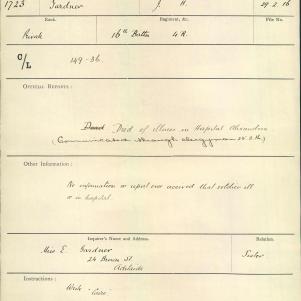 1723 Gardner J. H. 29.2.16
Rank. Regiment, &c. File No
Private 16th Battn 4 R.
C/L 149-36.
OFFICIAL REPORTS :
Died of illness in Hospital Alexandria
(Communicated through clergyman
Other Information :
No information or report ever received that soldier ill
or in hospital.
Inquirer's Name and Address. Relation
Miss E. Gardner Sister
24 Brown St
Adelaide
Instructions :
Write "Cairo"